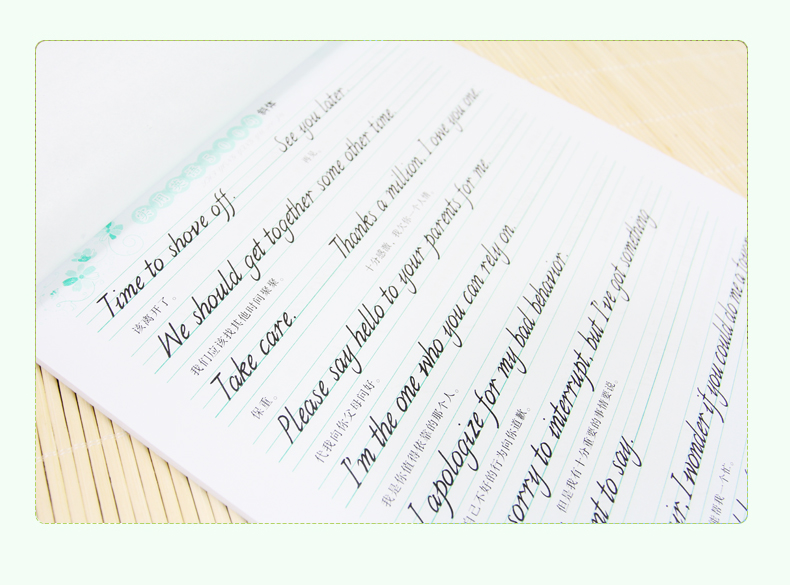 Time to shove off. See you later.
该离开了。 再见。
We should get together some other time.
我们应该找其他时间聚聚
Take care. Thanks a million. I owe you one.
保重。 十分感激，我欠你一个人情。
Please say hello to your parents for me.
代我向你父母问好。
I'm the one who you can rely on.
我是你值得依靠的那个人。
I apologize for my bad behavior.
自己不好的行为向你道歉。
sorry to interrupt, but I've got something
但是我有十分重要的事情要说。
nt to say.
I wonder if you could do me a
能帮我一个忙。